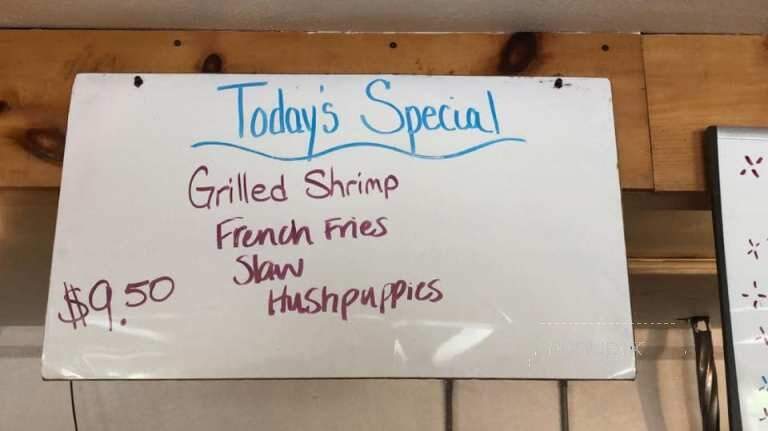 Today's Special
Grilled Shrimp
French Fries
Slaw
Hushpuppies
$9.50